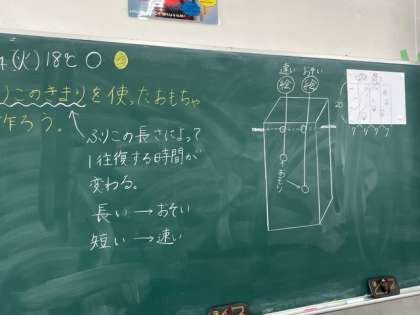 (火)18℃ ○
りこのきまりを使ったおもちゃ
作ろう。
ふりこの長さによって
1往復する時間が
変わる。
長い→おそい
短い→速い
速い おそい
絵 絵
おもり